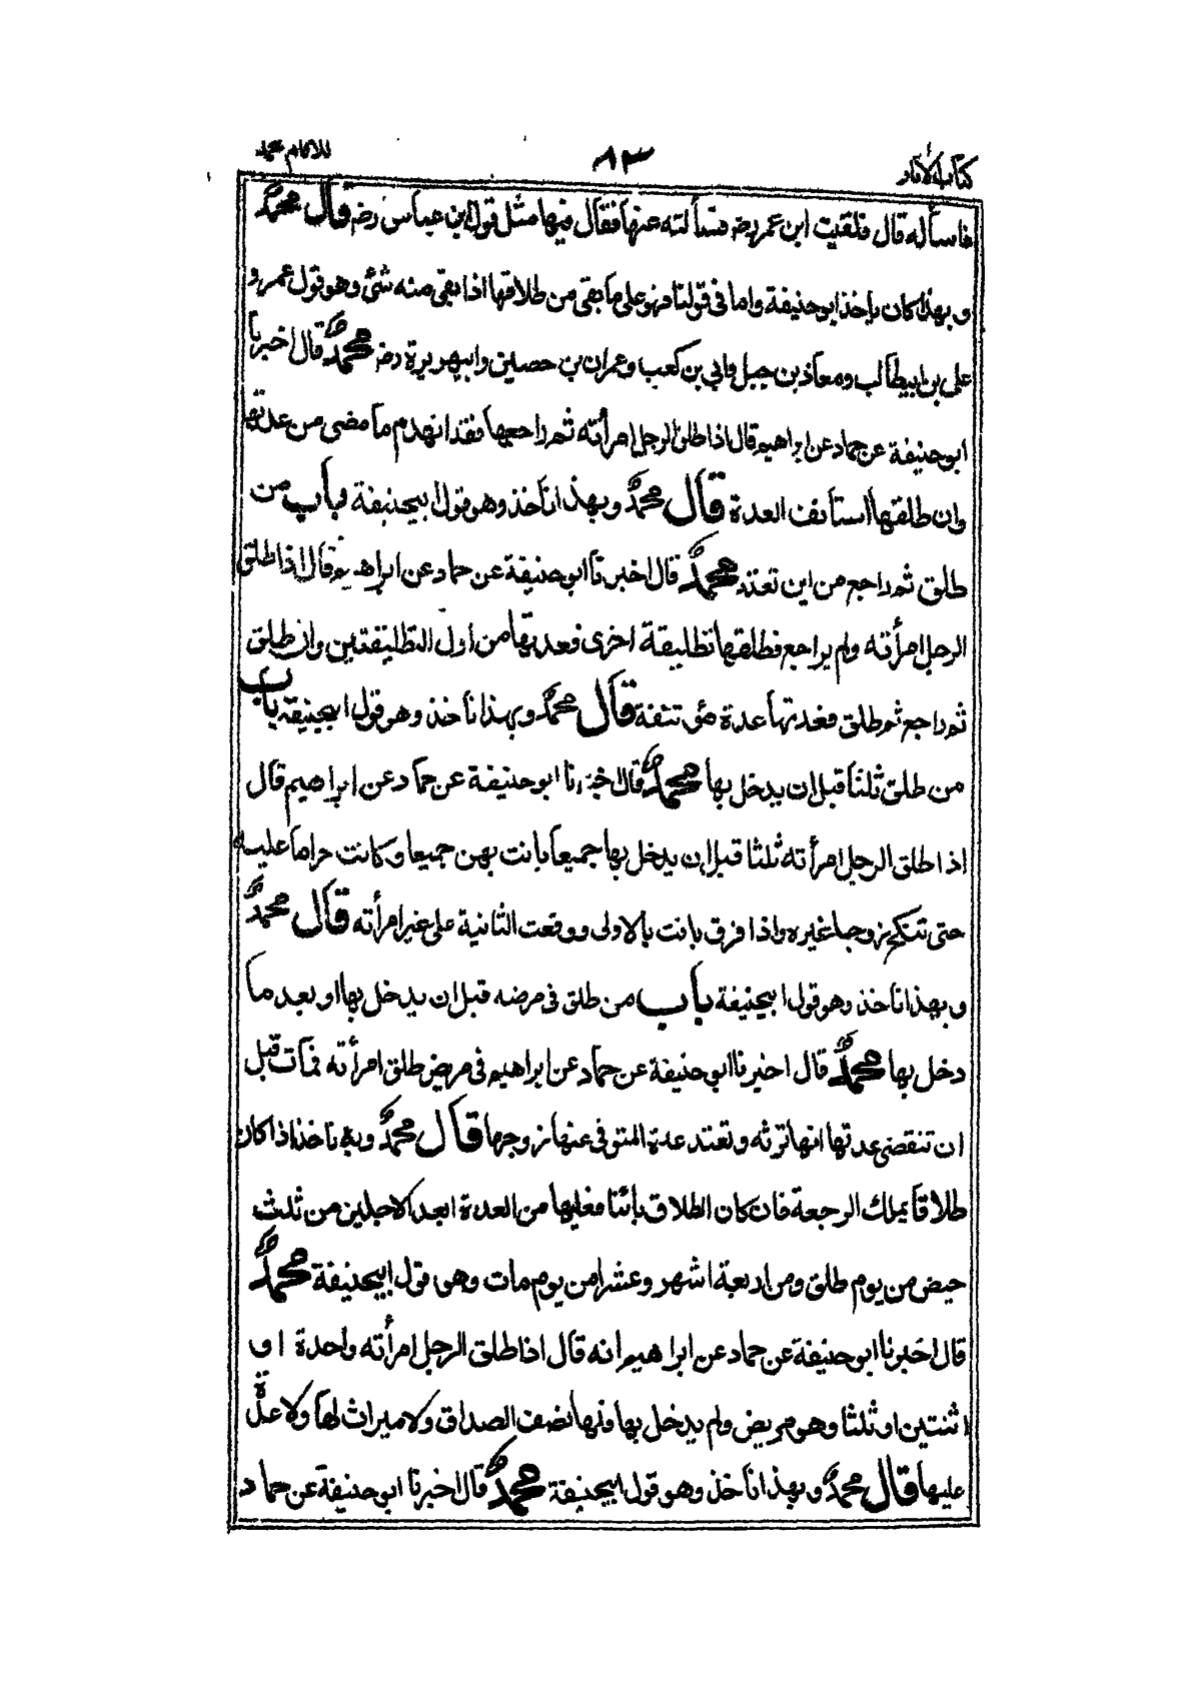 كتاب الآثار
٨٣
للامام محمد
فاسأله قال فلقيت ابن عمر رضه فسألته عنها فقال فيها مثل قول ابن عباس رضه قال محمد
و بهذا كان يأخذ ابو حنيفة واما في قولنا فهو على ما بقى من طلاقها اذا بقى منه شئ وهو قول عمر و
على بن ابيطالب ومعاذ بن جبل وابي بن كعب وعمران بن حصين وابيهريرة رضه محمد قال اخبرنا
ابو حنيفة عن حماد عن ابراهيم قال اذا طلق الرجل امرأته ثم راجعها فقد انهدم ما مضى من عدتها
وان طلقها استأنف العدة قال محمد وبهذا نأخذ وهو قول ابيحنيفة باب من
طلق ثم راجع من اين تعتد محمد قال اخبرنا ابو حنيفة عن حماد عن ابراهيم قال اذا طلق
الرجل امرأته ولم يراجع فطلقها تطليقة اخرى فعدتها من اول التطليقتين وان طلق
ثم راجع ثم طلق فعدتها عدة مؤتنفة قال محمد وبهذا نأخذ وهو قول ابيحنيفة باب
من طلق ثلثا قبل ان يدخل بها محمد قال اخبرنا ابو حنيفة عن حماد عن ابراهيم قال
اذا طلق الرجل امرأته ثلثا قبل ان يدخل بها جميعا بانت بهن جميعا وكانت حراما عليه
حتى تنكح زوجا غيره واذا فرق بانت بالاولى ووقعت الثانية على غير امرأته قال محمد
و بهذا نأخذ وهو قول ابيحنيفة باب من طلق في مرضه قبل ان يدخل بها او بعد ما
دخل بها محمد قال اخبرنا ابو حنيفة عن حماد عن ابراهيم في مريض طلق امرأته فمات قبل
ان تنقضى عدتها انها ترثه وتعتد عدة المتوفى عنها زوجها قال محمد وبه نأخذ اذا كان
طلاقا يملك الرجعة فان كان الطلاق بائنا فعليها من العدة ابعد الاجلين من ثلث
حيض من يوم طلق ومن اربعة اشهر وعشرا من يوم مات وهو قول ابيحنيفة محمد
قال اخبرنا ابو حنيفة عن حماد عن ابراهيم انه قال اذا طلق الرجل امرأته واحدة او
اثنتين او ثلثا وهو مريض ولم يدخل بها فلها نصف الصداق ولا ميراث لها ولا عدة
عليها قال محمد وبهذا نأخذ وهو قول ابيحنيفة محمد قال اخبرنا ابو حنيفة عن حماد